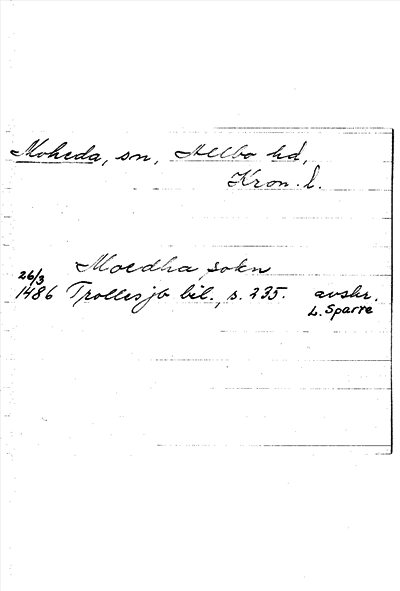 Moheda, sn, Allbo hd,
Kron. l.
Moedha sokn
26/3
1486 Trolles jb bil., s. 235. avskr.
L. Sparre